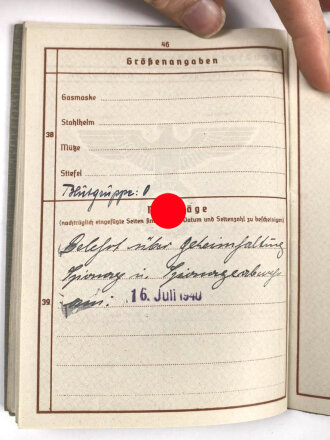 46
Größenangaben
Gasmaske
Stahlhelm
38
Mütze
Stiefel
Blutgruppe: 0
(nachträglich eingefügte Seiten sind mit Datum und Seitenzahl zu bescheinigen)
Belehrt über Geheimhaltung
Spionage u. Spionageabwehr
39
am: 16. Juli 1940